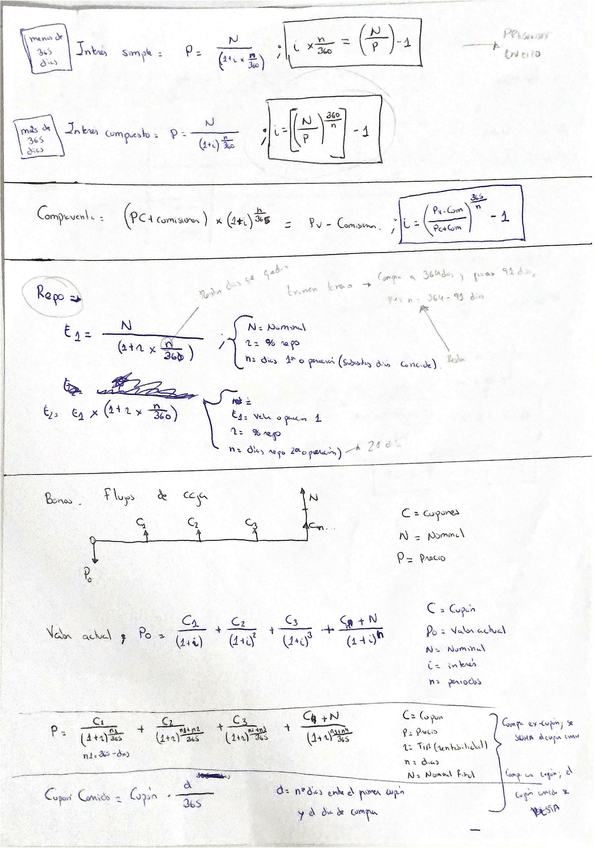 menos de 365 días
Interés simple = P = N / (1+i × n/360) ; i × n/360 = (N/P) - 1
más de 365 días
Interés compuesto = P = N / (1+i)^(n/360) ; i = [(N/P)^(360/n)] - 1
Compraventa = (PC + comisiones) × (1+i)^(n/365) = Pv - Comision. ; i = (Pv-Com / Pc+Com)^(365/n) - 1
Repo ⇒
Compra a 364 días y pasan 91 días,
n = 364 - 91 días
t1 = N / (1+r × n/360) ;
N = Nominal
r = % repo
n = días 1ª operación
t2 = t1 × (1+r × n/360)
t1 = Valor operación 1
r = % repo
n = días repo 2ª operación)
Bonos. Flujos de caja
C1 C2 C3 Cn... N
P0
C = Cupones
N = Nominal
P = Precio
Valor actual, P0 = C1/(1+i) + C2/(1+i)^2 + C3/(1+i)^3 + Cn + N/(1+i)^n
C = Cupón
P0 = Valor actual
N = Nominal
i = interés
n = periodos
P = C1/(1+r)^(n1/365) + C2/(1+r)^(n1+n2/365) + C3/(1+r)^(n2+n3/365) + Cn + N/(1+r)^(n3+n4/365)
n1 = 365 - días
C = Cupón
P = Precio
r = TIR (rentabilidad)
n = días
N = Nominal Final
Compra ex-cupón, se
SUMA el cupón
Compra cupón, el
cupón corrido se
Cupón Corrido = Cupón · d/365
d = nº días entre el primer cupón
y el día de compra